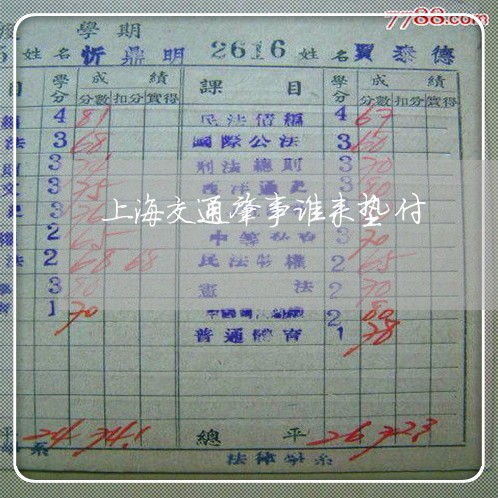 7788.com
學期
姓名忻鼎明 2616 姓名賈泰德
目 學分 成績 課目 學分 成績
分數 扣分 實得 分數 扣分 實得
4 81 民法債編 4 67
法 3 68 國際公法 3 60
3 刑法總則 3 70
3 75 3 80
上海交通肇事谁来垫付
權 2 65 3 70
法 2 68 68 民法物權 2 65
3 80 憲法 2 70
1 70 2 80
普通體育 1 78
平 24 74.1 總平 26 72.3
系 法律學系